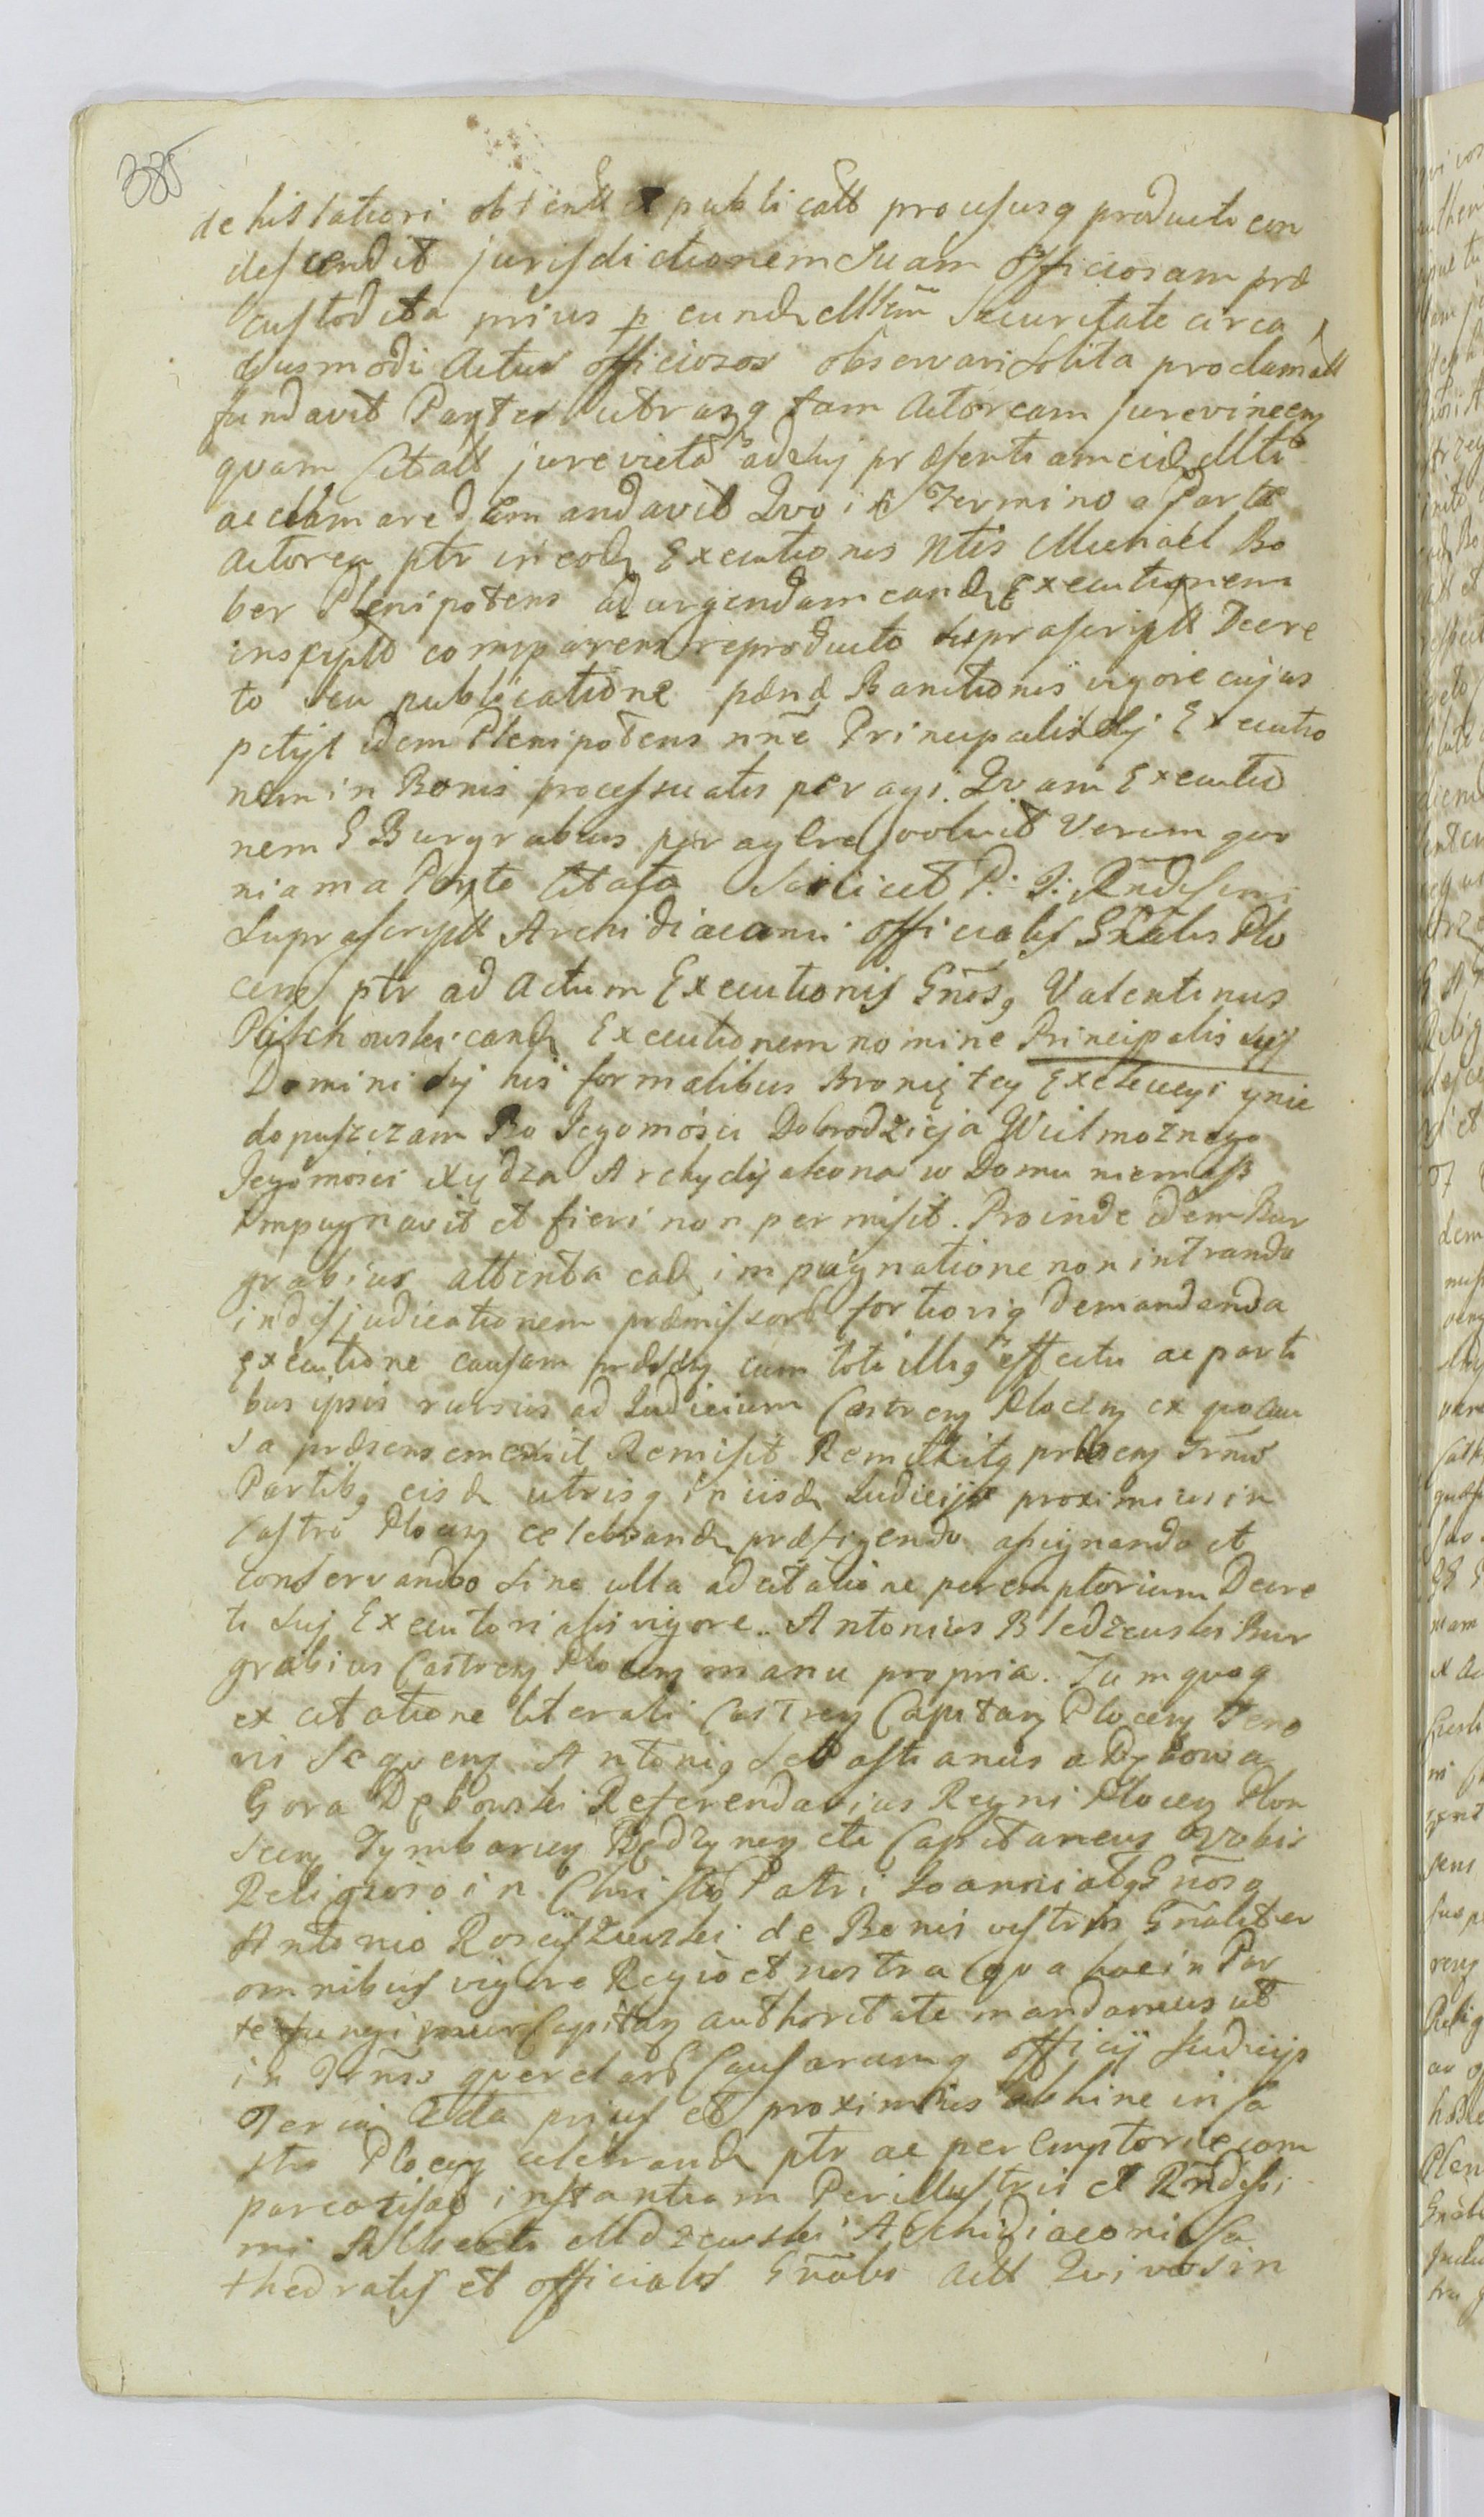 385
de his latiori obtent et publicatt processusq producto con
descendit jurisdictionem suam Officiosam præ
custodita prius p eund Mtem securitate circa
ejusmodi Actus officiosos observari solita proclamatt
fundavit Partes utrasq tam Actoream jurevincen
quam Citatt jurevictā ad suj præsentiam eid Mti
acclamare demandavit Quo in Termino a Parte
Actorea ptr in eod Executionis Ntis Michael Bo
ber Plenipotens ad urgendam eand Executionem
inscripto comparens reproducto suprascriptt Decre
to seu publicatione pænæ Banitionis vigore cujus
petijt idem Plenipotens nne Principalis suj Executio
nem in Bonis processuatis peragi. Quam Executio
nem G Burgrabius peragere voluit Verum quo
niam a Parte Citata Scilicet P: J: Rndissimi
Suprascriptt Archidiaconi Officialis Gnalis Plo
cen ptr ad Actum Executionis Gnosq Valentinus
 eand Executionem nomine Principalis suj
Domini suj his formalibus Bronię tey Exekucyi ynie
dopuszczam Bo Jegomości Dobrodzieja Wielmoznego
Jegomości Xiędza Archydyakona w Domu niemasz
impugnavit et fieri non permisit. Proinde idem Bur
grabius attenta ead impugnatione non intrando
in disjudicationem præmissorū fortioriq demandanda
executione causam præsen cum toto illiq effectu ac parti
bus ipsis rursus ad Judicium Castren Plocen ex quo cau
sa præsens emersit Remisit Remittitq præsen Trnū
Partibq eisd utrisq in iisd Judicijs proximius in
Castro Plocen celebrand præfigendo assignando et
conservando sine ulla adcitatione peremptorium Decre
ti suj Executorialis vigore. Antonius Bledzewski Bur
grabius Castren Plocen manu propria. Tum quoq
ex citatione literali Castren Capitan Plocen Teno
ris sequen Antoniq Sebastianus a Dębowa
Gora Dębowski Referendarius Regni Plocen Plon
scen Tymbarcen Będzynen etc Capitaneus Vobis
Religioso in Christo Patri Joanni atq Gnosq
Antonio Rosciszewski de Bonis vestris Gnaliter
omnibus vigore Regio et nostra qua hac in Par
te fungimur Capitan authoritate mandamus ut
in Trnis querelarū Causarumq officij Judicijs
Terin Æda prius et proximius abhinc in Ca
stro Plocen celebrand ptr ac peremptorie com
pareatis ad instantiam Perillustris et Rndissi
mi Alberti Mdzewski Archidiaconi Ca
thedralis et officialis Gnalis Actt Qui vos in